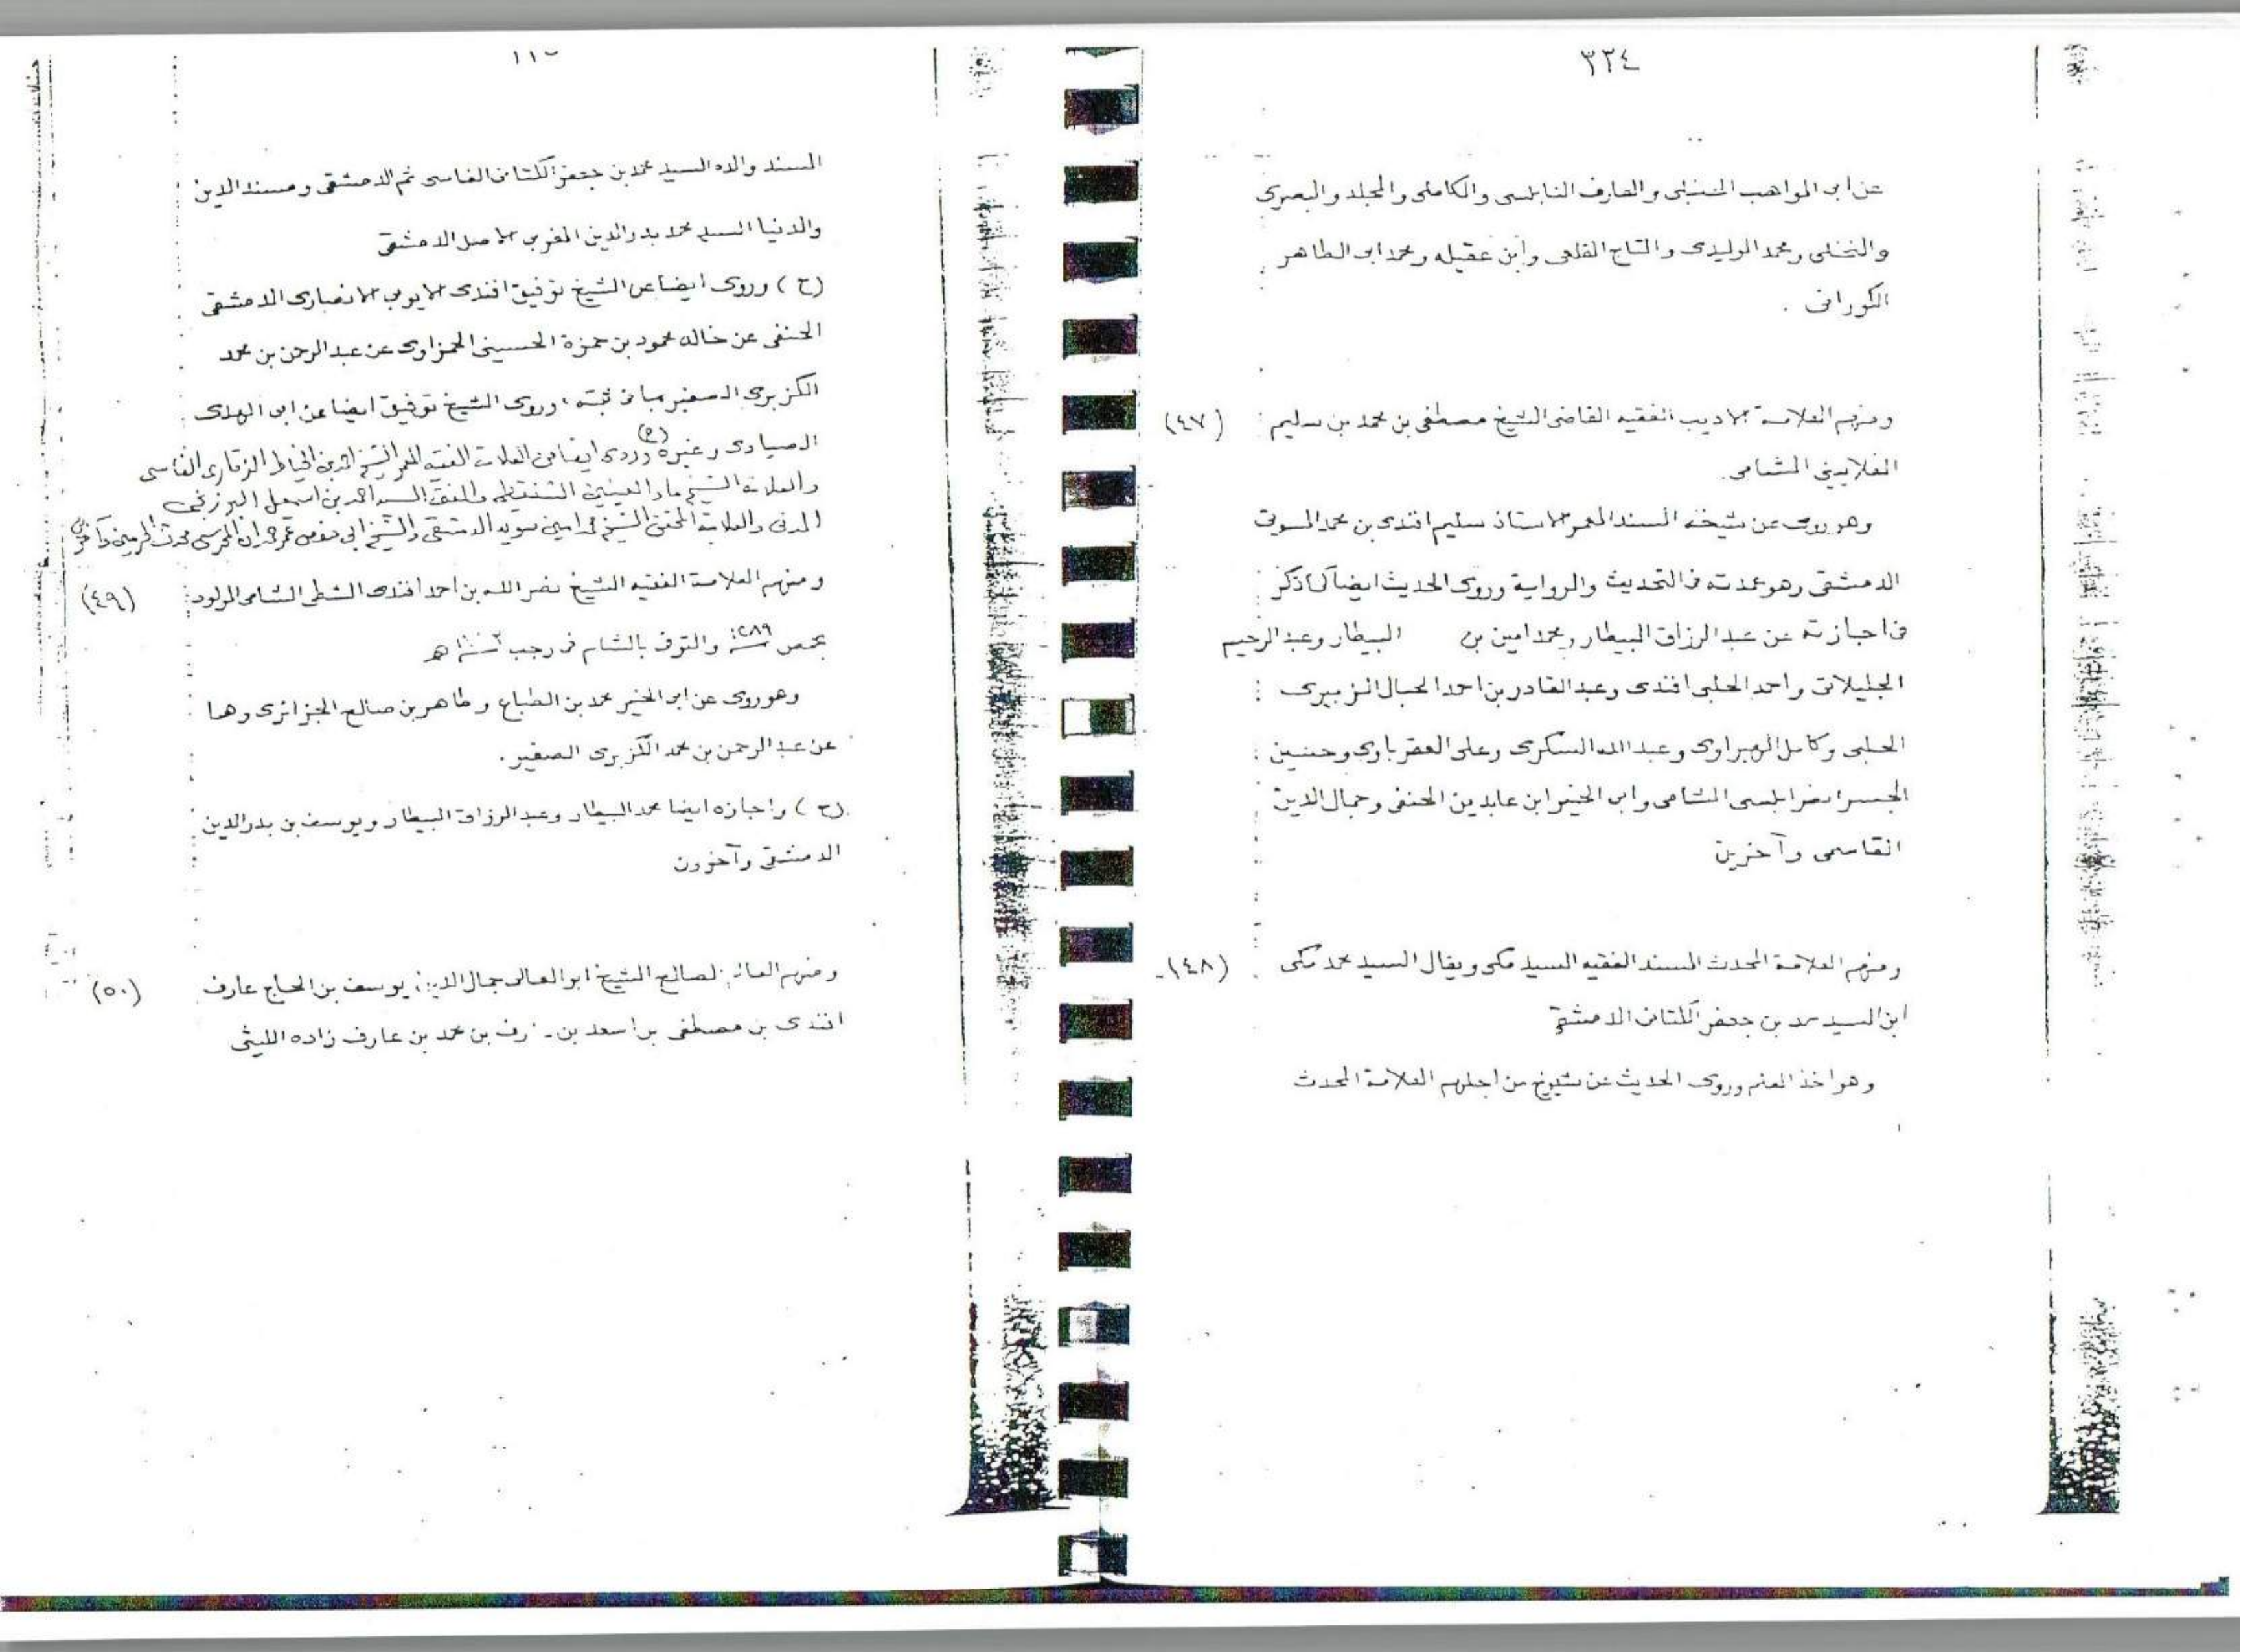 ٣٢٤
عن ابى المواهب الحنبلى والعارف النابلسى والكاملى والمجلد والبصرى
والنخلى ومحمد الوليدى والتاج القلعى وابن عقيله ومحمد ابى الطاهر
الكورانى .
ومنهم العلامة الاديب الفقيه القاضى الشيخ مصطفى بن محمد بن سليم (٤٧)
الغلايينى الشامى .
وهو روى عن شيخه المسند المعمر الاستاذ سليم افندى بن محمد المسوتى
الدمشقى وهو عمدته فى التحديث والرواية وروى الحديث ايضا كما ذكر
فى اجازته عن عبد الرزاق البيطار ومحمد امين بن البيطار وعبد الرحيم
واحمد الحلبى افندى وعبد القادر بن احمد الحبال الزبيرى
الحلبى وكامل الهبراوى وعبد الله السكرى وعلى وحسين
الجسر الشامى وابى الخير ابن عابدين الحنفى وجمال الدين
القاسمى وآخرين
ومنهم العلامة المحدث المسند الفقيه السيد مكى ويقال السيد محمد مكى (٤٨)
ابن السيد محمد بن جعفر الكتانى الدمشقى
وهو اخذ العلم وروى الحديث عن شيوخ من اجلهم العلامة المحدث
المسند والده السيد محمد بن جعفر الكتانى الفاسى ثم الدمشقى ومسند الدين
والدنيا السيد محمد بدر الدين المغربى الاصل الدمشقى
(ح) وروى ايضا عن الشيخ توفيق افندى الايوبى الانصارى الدمشقى
الحنفى عن خاله محمود بن حمزة الحسينى الحمزاوى عن عبد الرحمن بن محمد
الكزبرى الصغير بما فى ثبته ، وروى الشيخ توفيق ايضا عن ابى الهدى
الصيادى وغيره (ح) وروى ايضا عن العلامة الفقيه المعمر الشيخ احمد بن الخياط الزقارى الفاسى
والعلامة الشيخ ماء العينين الشنقيطى والمفتى السيد احمد بن اسمعيل البرزنجى
المدنى والعلامة المحقق الشيخ امين سويد الدمشقى والشيخ ابى حفص عمر حمدان المحرسى محدث الحرمين وآخرين
ومنهم العلامة الفقيه الشيخ نصر الله بن احمد افندى الشطى الشامى المولود (٤٩)
بحمص ١٢٨٩ والتوفى بالشام فى رجب
وهو روى عن ابى الخير محمد بن الطباع وطاهر بن صالح الجزائرى وهما
عن عبد الرحمن بن محمد الكزبرى الصغير .
(ح) واجازه ايضا محمد البيطار وعبد الرزاق البيطار ويوسف بن بدر الدين
الدمشقى وآخرون
ومنهم الصالح الشيخ ابو المعالى جمال الدين يوسف بن الحاج عارف (٥٠)
افندى بن مصطفى بن اسعد بن بن محمد بن عارف زاده الليثى